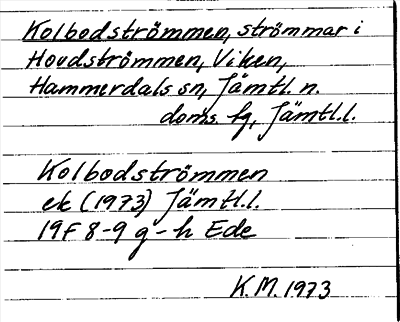 Kolbodströmmen, strömmar i
Hovdströmmen, Viken,
Hammerdals sn, Jämtl. n.
doms. fg, Jämtl.l.
Kolbodströmmen
ek (1973) Jämtl.l.
19F 8-9 g-h Ede
K.M. 1973